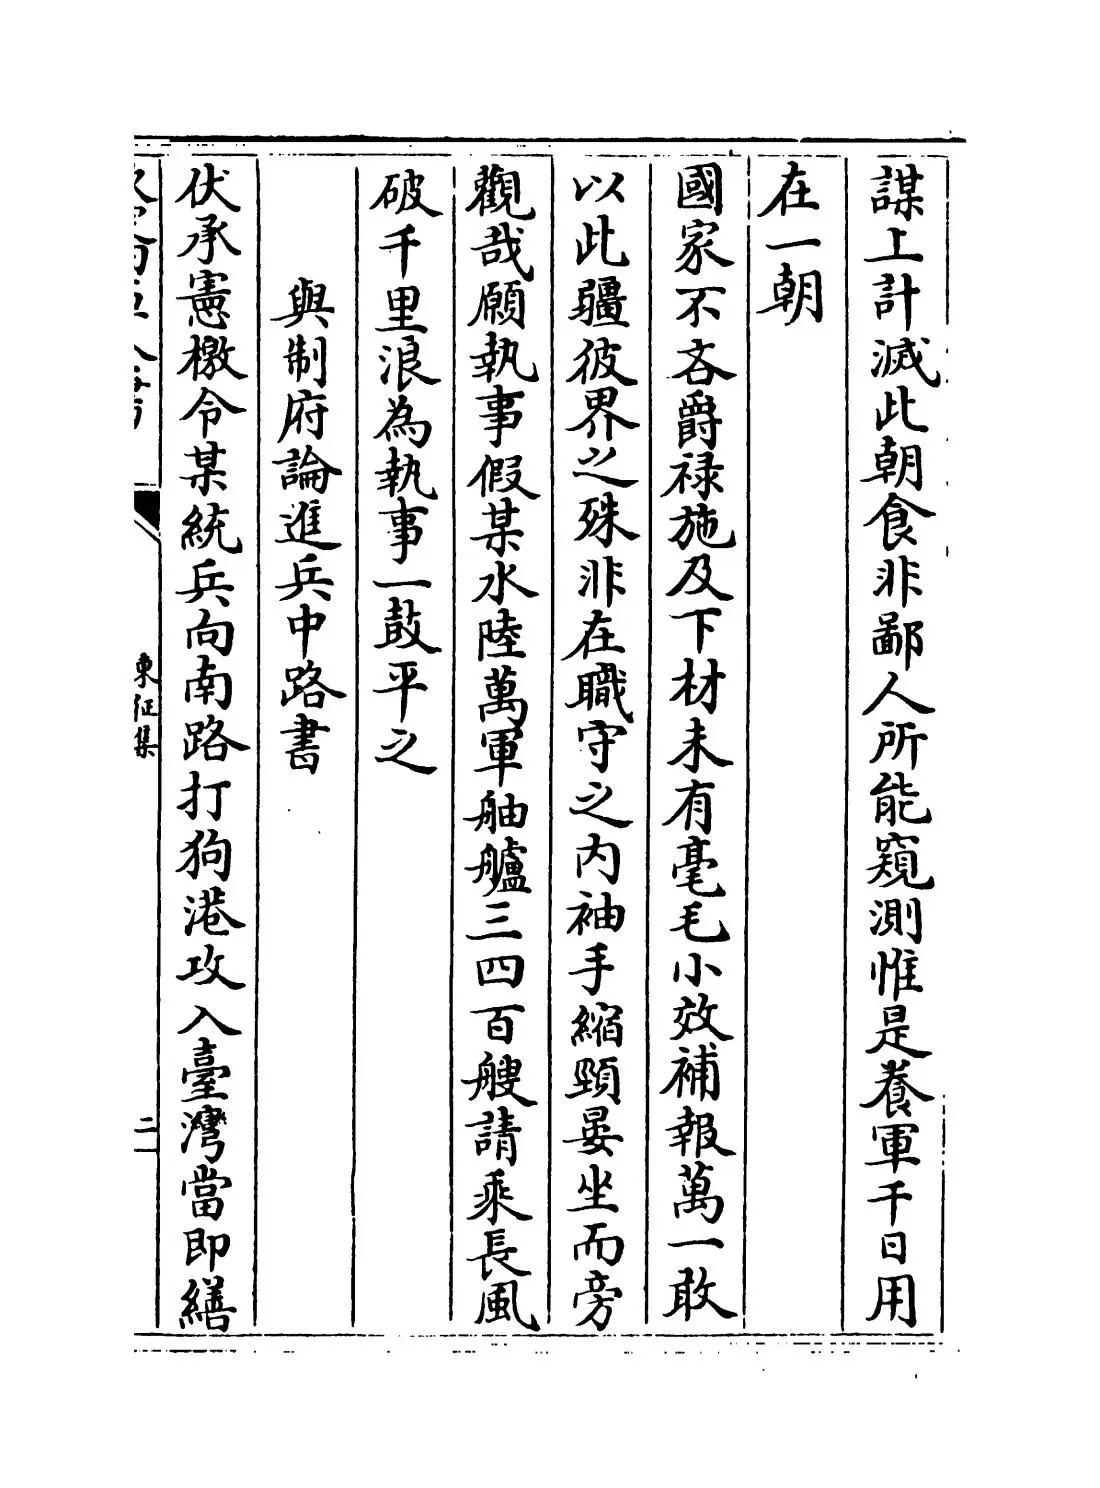 謀上計滅此朝食非鄙人所能窺測惟是養軍千日用
在一朝
國家不吝爵禄施及下材未有毫毛小效補報萬一敢
以此疆彼界之殊非在職守之内袖手縮頸晏坐而旁
觀哉願執事假某水陸萬軍舳艫三四百艘請乘長風
破千里浪為執事一鼓平之
與制府論進兵中路書
伏承憲檄令某統兵向南路打狗港攻入臺灣當即繕
東征集
二